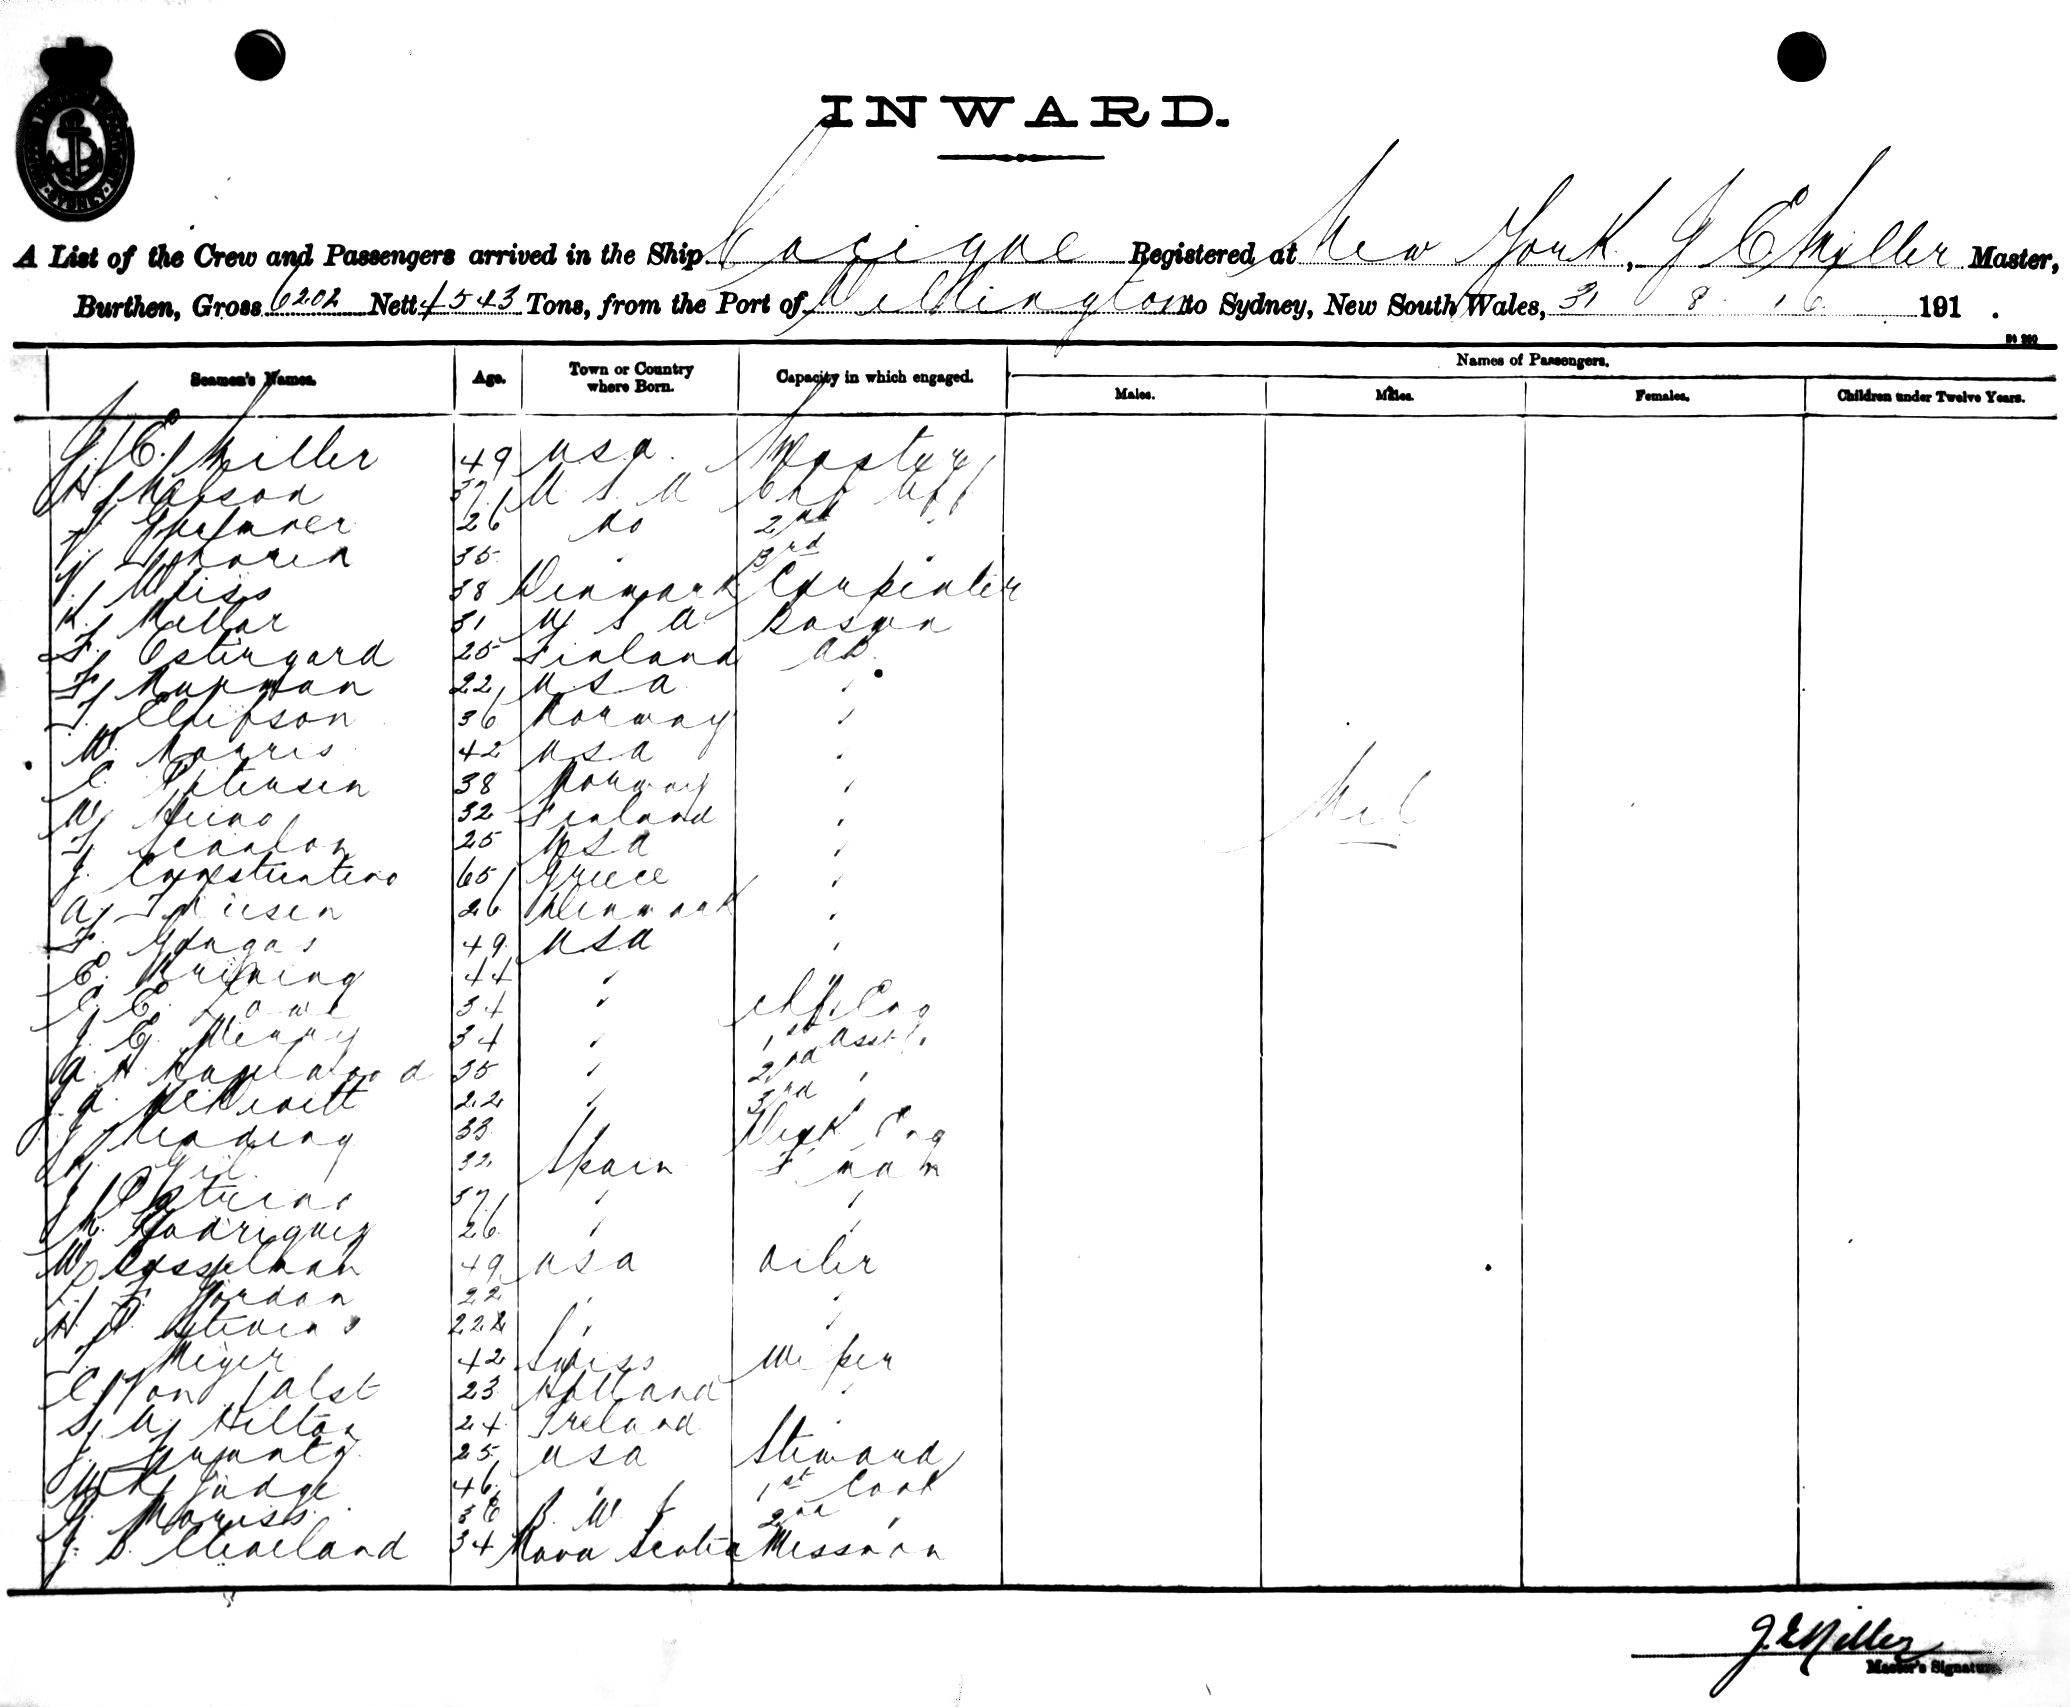 INWARD.
A List of the Crew and Passengers arrived in the Ship Cacique Registered at New York, J E Miller Master,
Burthen, Gross 6202 Nett 4543 Tons, from the Port of Wellington to Sydney, New South Wales, 31 8 16 191 .
Names of Passengers.
Seamen's Names. Age. Town or Country where Born. Capacity in which engaged. Males. Males. Females. Children under Twelve Years.
J. E. Miller 49 USA. Master
H. 37 U S A Chf Off
26 do 2nd "
35 " 3rd "
V. Weiss 38 Denmark Carpenter
K. 31 U S A Bosun
F. Ostergard 25 Finland AB
F. 22 U S A "
T. Ellefson 36 Norway "
W. Morris 42 USA "
C. Petersen 38 Norway "
W. Heino 32 Finland "
T. Scanlon 25 USA "
J. Constantino 65 Greece "
A. 26 Denmark "
F. 49 USA "
E. 44 "
C. E. 34 " Chf Eng
J. E. 34 " 1st Asst "
A. H. 35 " 2nd "
J. A. 22 " 3rd "
J. 33 Deck Eng
Gil 32 Spain F man
J. 37 " "
M. Rodriguez 26 " "
W. 49 USA Oiler
F. Gordon 22 " "
H. P. Stevens 22 " "
Meyer 42 Swiss Wiper
C. Van Aalst 23 Holland "
S. W. Hilton 24 Ireland "
J. 25 USA Steward
W. H. Judge 46 " 1st Cook
G. Moriss 38 B. W. I 2nd "
J. S. Cleveland 34 Nova Scotia Messman
Nil
J. E Miller
Master's Signature.